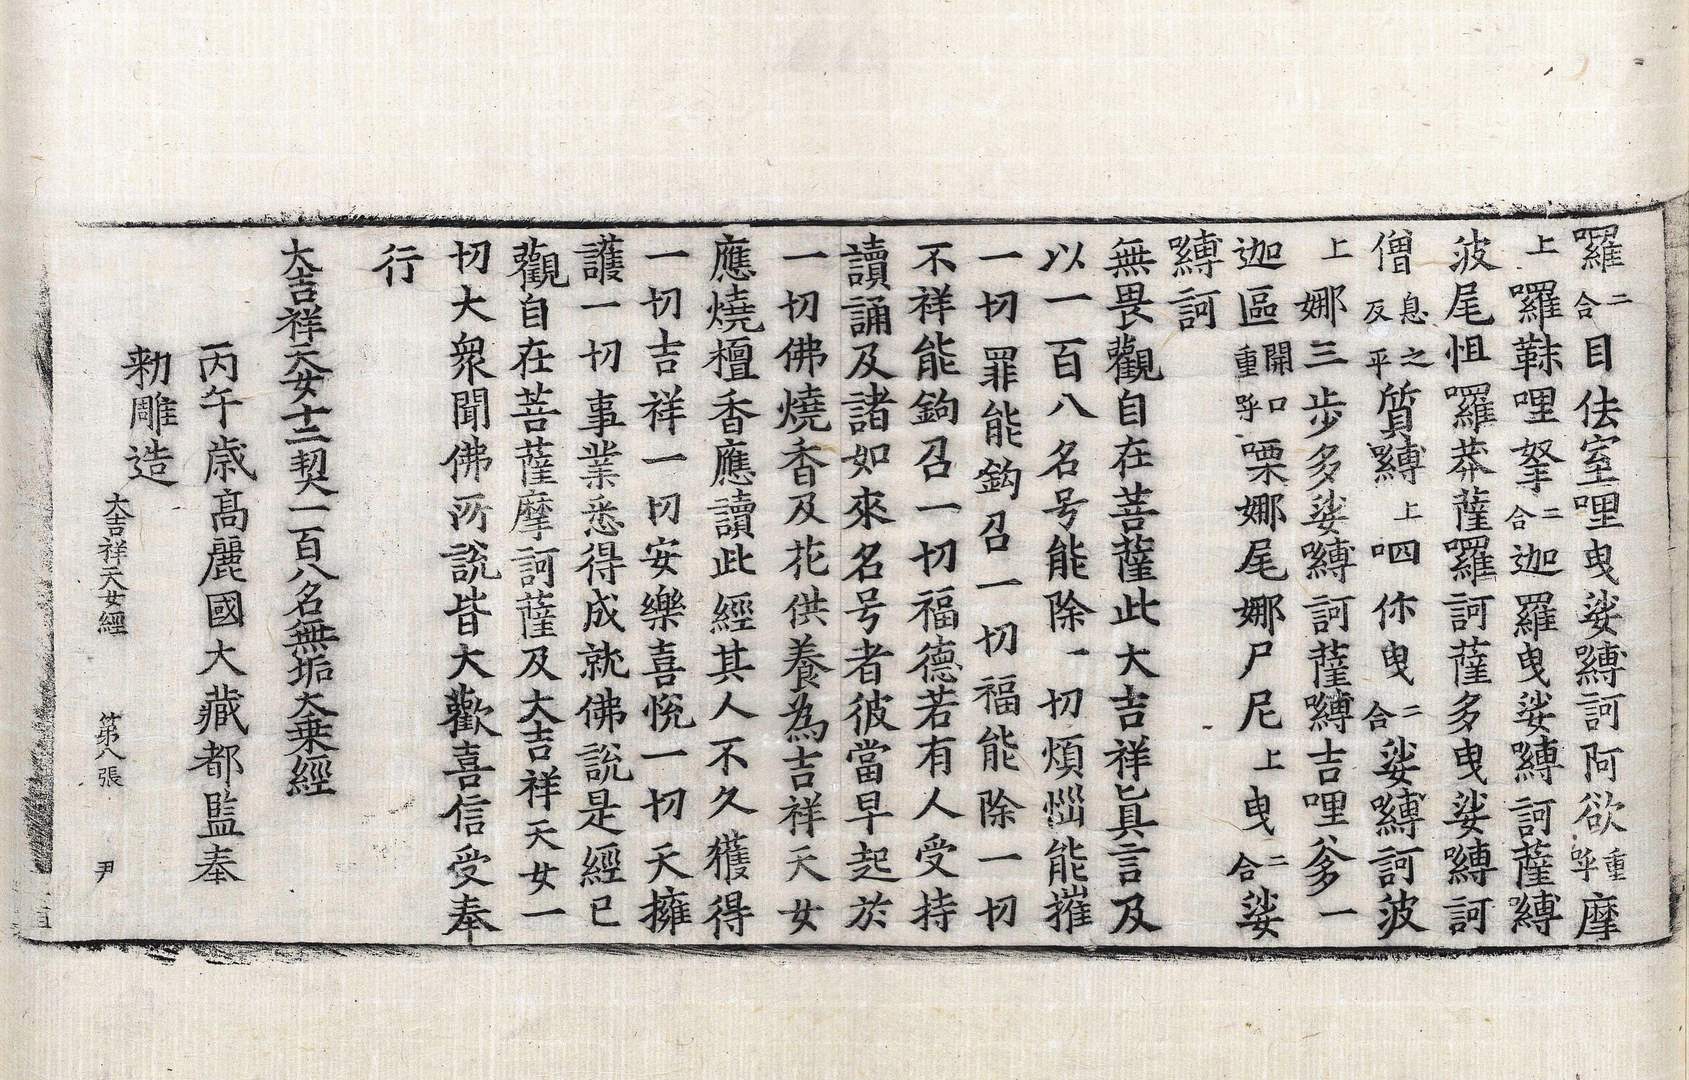 囉二合目佉室哩曳娑嚩訶阿欲重呼摩
上囉韎哩拏二合迦羅曳娑嚩訶薩縛
波尾怛囉莽薩囉訶薩多曳娑嚩訶
僧息之反平質嚩上呬你曳二合娑嚩訶波
上娜三步多娑嚩訶薩嚩吉哩多一
迦區開口重呼㗚娜尾娜尸尼上曳二合娑
嚩訶
無畏觀自在菩薩此大吉祥眞言及
以一百八名号能除一切煩惱能摧
一切罪能鉤召一切福能除一切
不祥能鉤召一切福德若有人受持
讀誦及諸如來名号者彼當早起於
一切佛燒香及花供養為吉祥天女
應燒檀香應讀此經其人不久獲得
一切吉祥一切安樂喜悅一切天擁
護一切事業悉得成就佛說是經已
觀自在菩薩摩訶薩及大吉祥天女一
切大衆聞佛所說皆大歡喜信受奉
行
大吉祥天女十二契一百八名無垢大乗經
丙午歲高麗國大藏都監奉
勑雕造
大吉祥天女經 第八張 尹